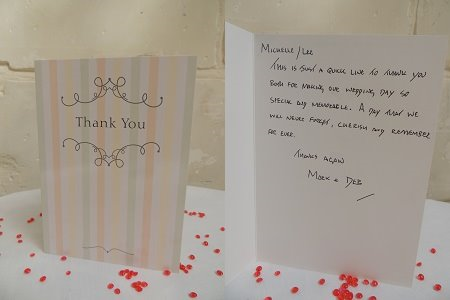 Thank You
MICHELLE/LEE
THIS IS JUST A QUICK LINE TO THANK YOU
BOTH FOR MAKING OUR WEDDING DAY SO
SPECIAL AND MEMORABLE. A DAY THAT WE
WILL NEVER FORGET, CHERISH AND REMEMBER
FOR EVER.
THANKS AGAIN
MARK & DEB